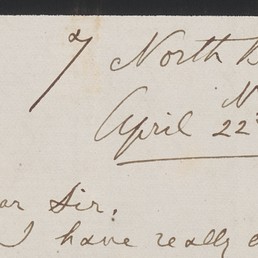 7 North B
N
April 22
ar Sir,
I have really